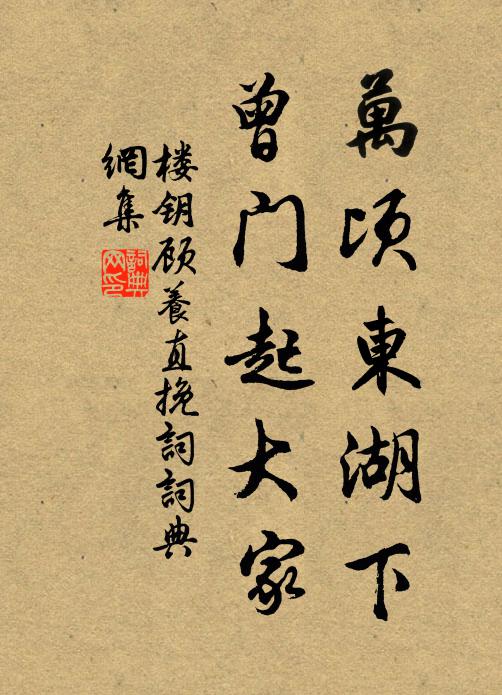 萬顷東湖下
曾门起大家
楼钥顾養直挽詞詞典
網集
詞典
网印